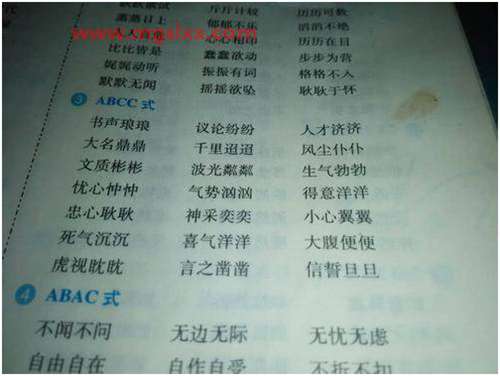 斤斤计较 历历可数
蒸蒸日上 郁郁不乐 滔滔不绝
心心相印 历历在目
比比皆是 蠢蠢欲动 步步为营
娓娓动听 振振有词 格格不入
默默无闻 摇摇欲坠 耿耿于怀
3 ABCC 式
书声琅琅 议论纷纷 人才济济
大名鼎鼎 千里迢迢 风尘仆仆
文质彬彬 波光粼粼 生气勃勃
忧心忡忡 气势汹汹 得意洋洋
忠心耿耿 神采奕奕 小心翼翼
死气沉沉 喜气洋洋 大腹便便
虎视眈眈 言之凿凿 信誓旦旦
4 ABAC 式
不闻不问 无边无际 无忧无虑
自由自在 自作自受 不折不扣